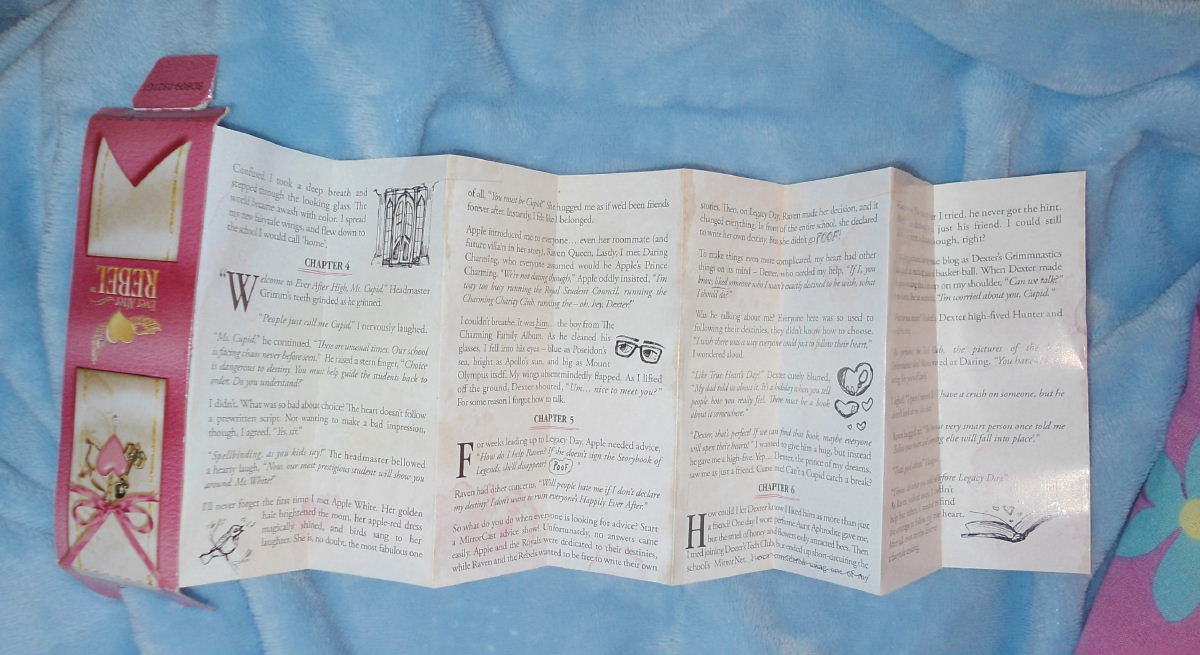 BCB09-0520 G1
Ever After
REBEL
Confused, I took a deep breath and
stepped through the looking glass. The
world became awash with color. I spread
my new fairytale wings, and flew down to
the school I would call 'home'.
CHAPTER 4
"Welcome to Ever After High, Ms. Cupid." Headmaster
Grimm's teeth grinded as he grinned.
"People just call me Cupid." I nervously laughed.
"Ms. Cupid," he continued, "These are unusual times. Our school
is facing chaos never before seen." He raised a stern finger, "Choice
is dangerous to destiny. You must help guide the students back to
order. Do you understand?"
I didn't. What was so bad about choice? The heart doesn't follow
a prewritten script. Not wanting to make a bad impression,
though, I agreed. "Yes, sir."
"Spellbinding, as you kids say!" The headmaster bellowed
a hearty laugh, "Now, our most prestigious student will show you
around. Ms. White?"
I'll never forget the first time I met Apple White. Her golden
hair brightened the room, her apple-red dress
magically shined, and birds sang to her
laughter. She is, no doubt, the most fabulous one
of all. "You must be Cupid!" She hugged me as if we'd been friends
forever after. Instantly, I felt like I belonged.
Apple introduced me to everyone… even her roommate (and
future villain in her story), Raven Queen. Lastly, I met Daring
Charming, who everyone assumed would be Apple's Prince
Charming. "We're not dating though," Apple oddly insisted, "I'm
way too busy running the Royal Student Council, running the
Charming Charity Club, running the – oh, hey, Dexter!"
I couldn't breathe. It was him… the boy from The
Charming Family Album. As he cleaned his
glasses, I fell into his eyes – blue as Poseidon's
sea, bright as Apollo's sun, and big as Mount
Olympus itself. My wings absentmindedly flapped. As I lifted
off the ground, Dexter shouted, "Um… nice to meet you?"
For some reason I forgot how to talk.
CHAPTER 5
For weeks leading up to Legacy Day, Apple needed advice,
"How do I help Raven? If she doesn't sign the Storybook of
Legends, she'll disappear! POOF "
Raven had other concerns, "Will people hate me if I don't declare
my destiny? I don't want to ruin everyone's Happily Ever After."
So what do you do when everyone is looking for advice? Start
a MirrorCast advice show! Unfortunately, no answers came
easily. Apple and the Royals were dedicated to their destinies,
while Raven and the Rebels wanted to be free to write their own
stories. Then, on Legacy Day, Raven made her decision, and it
changed everything. In front of the entire school, she declared
to write her own destiny. But she didn't go POOF!
To make things even more complicated, my heart had other
things on its mind – Dexter, who needed my help, "If I, you
know, liked someone who I wasn't exactly destined to be with, what
should I do?"
Was he talking about me? Everyone here was so used to
following their destinies, they didn't know how to choose.
"I wish there was a way everyone could just to follow their heart,"
I wondered aloud.
"Like True Hearts Day?" Dexter cutely blurted,
"My dad told us about it. It's a holiday when you tell
people how you really feel. There must be a book
about it somewhere."
"Dexter, that's perfect! If we can find that book, maybe everyone
will open their hearts!" I wanted to give him a hug, but instead
he gave me a high-five. Yep… Dexter, the prince of my dreams,
saw me as just a friend. Cute and Can't a Cupid catch a break?
CHAPTER 6
How could I let Dexter know I liked him as more than just
a friend? One day I wore perfume Aunt Aphrodite gave me,
but the smell of honey and flowers only attracted bees. Then
I tried joining Dexter's Tech Club, but ended up short-circuiting the
school's MirrorNet. I even considered using one of my
I tried, he never got the hint.
just his friend. I could still
ough, right?
blog as Dexter's Grimmnastics
basket-ball. When Dexter made
on my shoulder, "Can we talk?"
"I'm worried about you, Cupid."
Dexter high-fived Hunter and
the pictures of the
at Daring, "You
have a crush on someone, but he
very smart person once told me
else will fall into place'."
before Legacy Day."
find
heart.